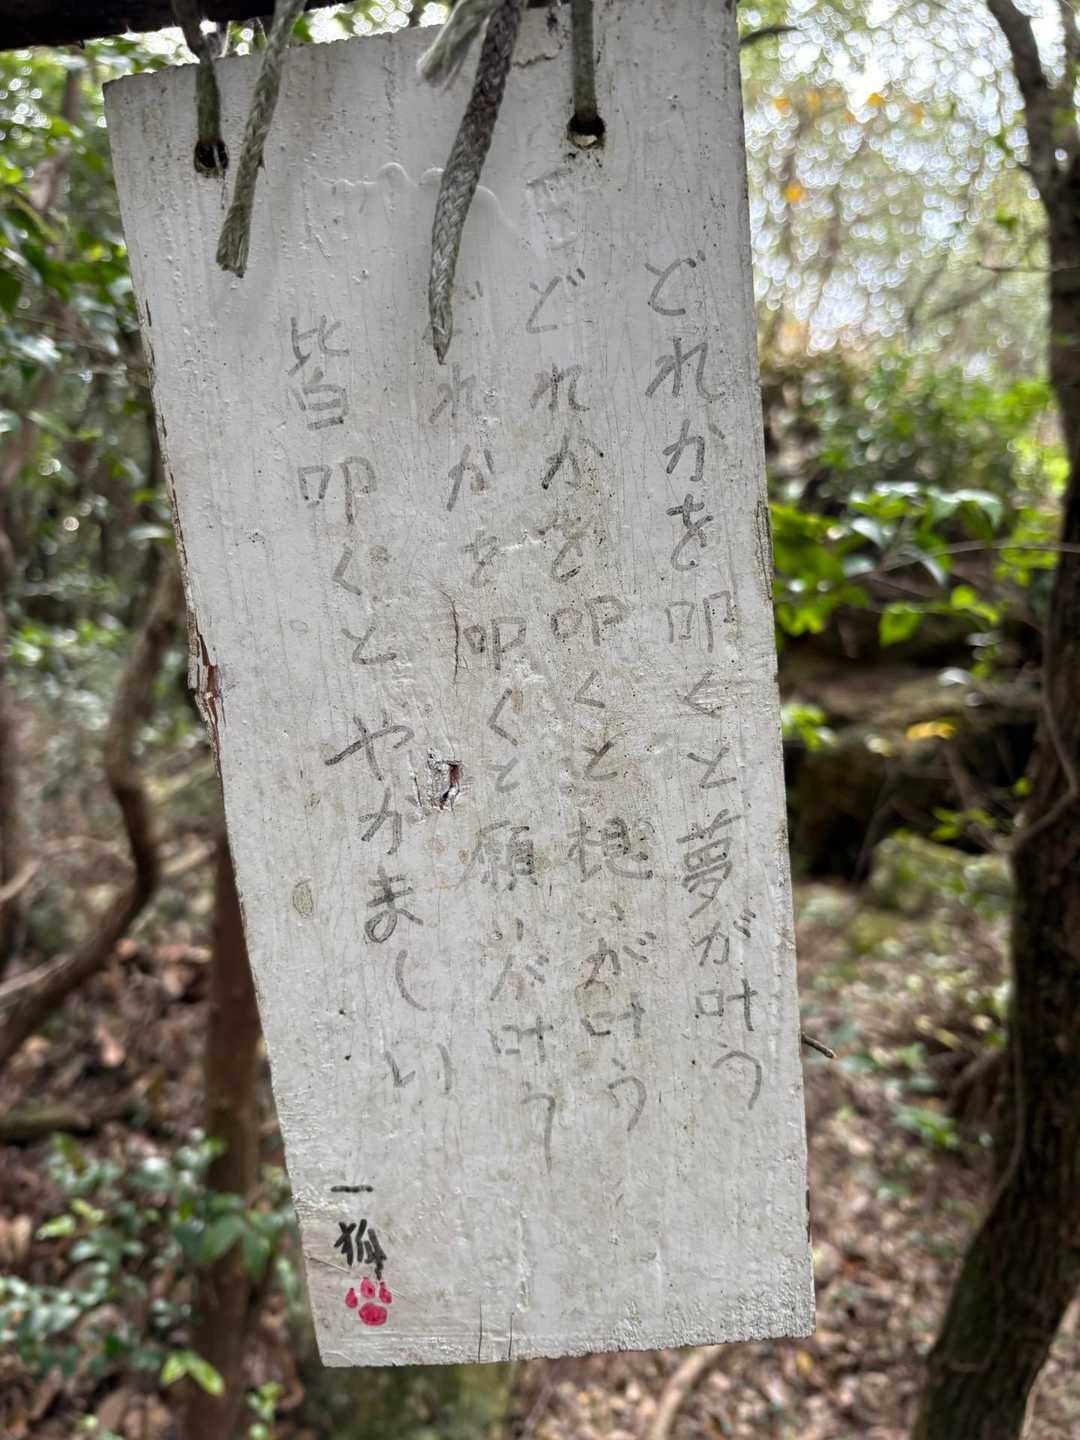 どれかを叩くと夢が叶う
どれかを叩くと想いが叶う
どれかを叩くと願いが叶う
皆叩くとやかましい
一狐